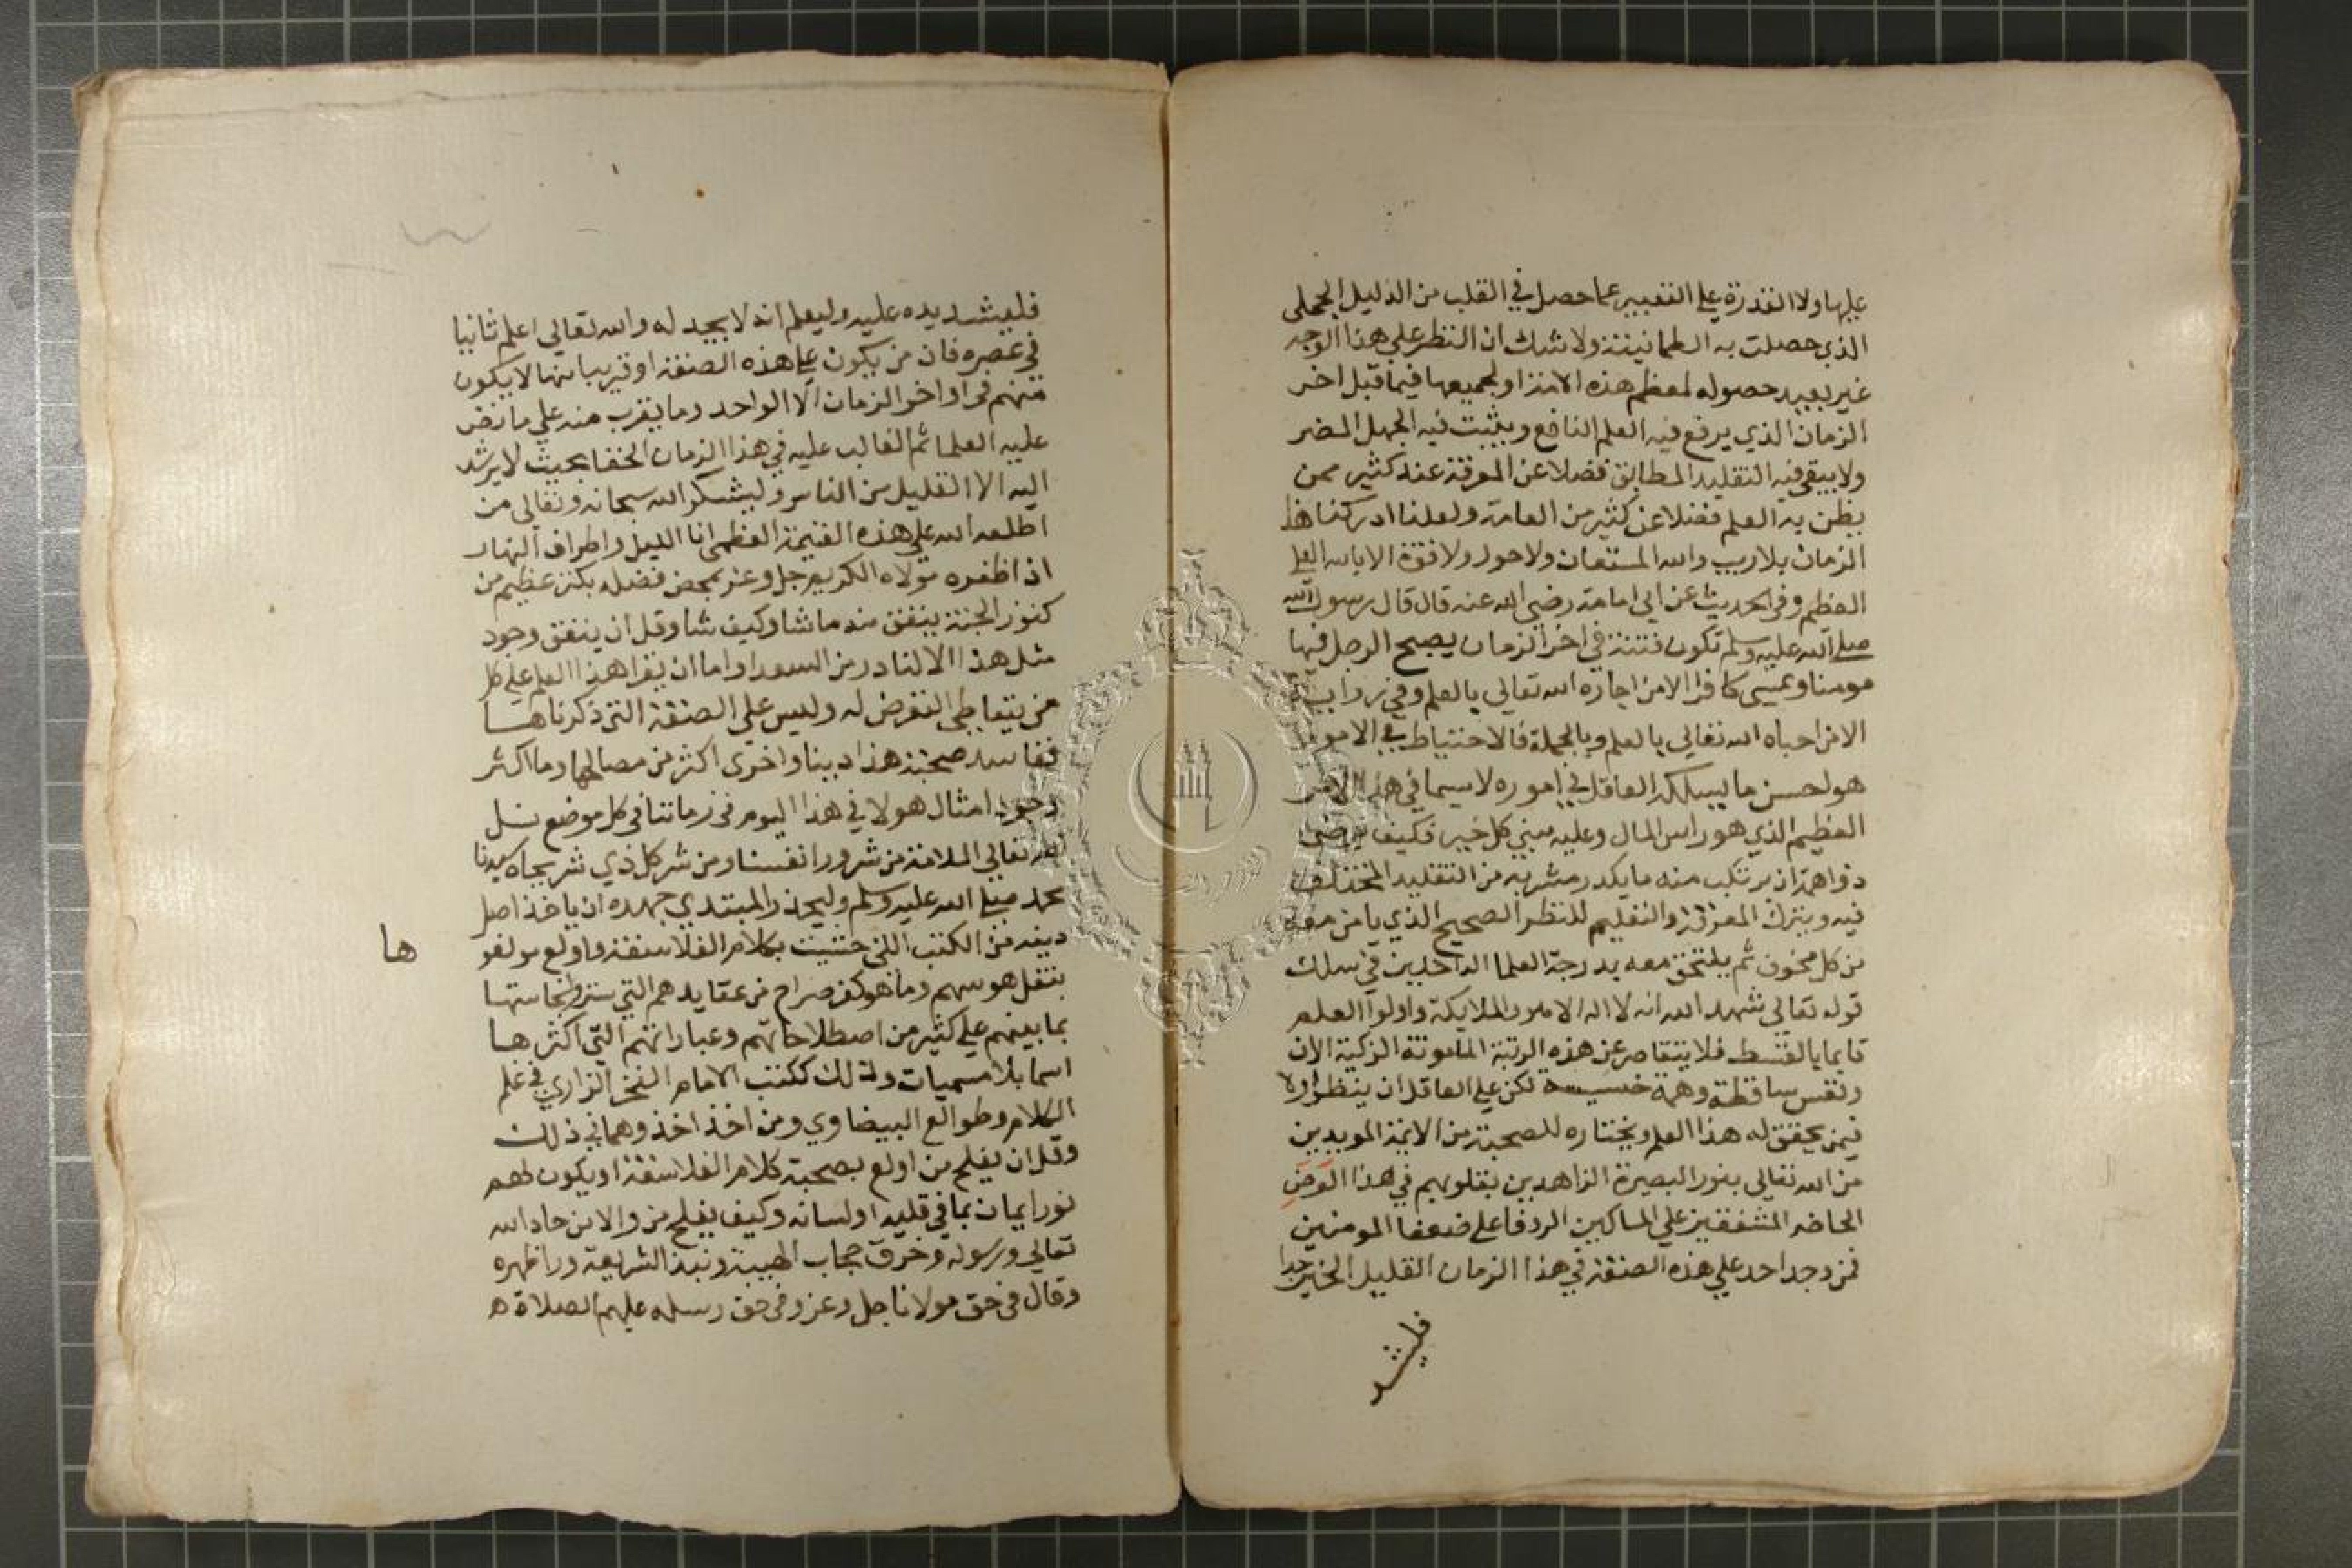 عليها ولا القدرة علي التعبير عما حصل في القلب من الدليل الجملي
الذي حصلت به الطمانينة ولا شك ان النظر علي هذا الوجه
غير بعيد حصوله لمعظم هذه الامة او لجميعها فيما قبل اخر
الزمان الذي يرفع فيه العلم النافع ويثبت فيه الجهل المضر
ولا يبقي فيه التقليد المطابق فضلا عن المعرفة عند كثير ممن
يظن به العلم فضلا عن كثير من العامة ولعلنا ادركنا هذا
الزمان بلا ريب والله المستعان ولا حول ولا قوة الا بالله العلي
العظيم وفي الحديث عن ابي امامة رضي الله عنه قال قال رسول الله
صلي الله عليه وسلم تكون فتنة في اخر الزمان يصبح الرجل فيها
مومنا ويمسي كافرا الا من اجاره الله تعالي بالعلم وفي رواية
الا من احياه الله تعالي بالعلم وبالجملة فالاحتياط في الامور
هو احسن ما يسلكه العاقل في اموره لا سيما في هذا الامر
العظيم الذي هو راس المال وعليه مبني كل خير فكيف يرضي
ذو اهمة ان يرتكب منه ما يكدر مشربه من التقليد المختلف
فيه ويترك المعرفة والتعليم للنظر الصحيح الذي يامن معه
من كل مخوف ثم يلتحق معه بدرجة العلما الداخلين في سلك
قوله تعالي شهد الله انه لا اله الا هو والملايكة واولوا العلم
قايما بالقسط فلا يتقاصر عن هذه الرتبة المامونة الزكية الا ذو
نفس ساقطة وهمة خسيسة لكن علي العاقل ان ينظر اولا
فيمن يحقق له هذا العلم ويختاره للصحبة من الايمة المويدين
من الله تعالي بنور البصيرة الزاهدين بقلوبهم في هذا العرض
الحاضر المشفقين علي المساكين الروفا علي ضعفا المومنين
فمن وجد احد علي هذه الصفة في هذا الزمان القليل الخير جدا
فليشد
فليشد يده عليه وليعلم انه لا يجد له والله تعالي اعلم ثانيا
في عصره فان من يكون علي هذه الصفة او قريبا منها لا يكون
منهم في اواخر الزمان الا الواحد وما يقرب منه علي ما نص
عليه العلما ثم الغالب عليه في هذا الزمان الخفا بحيث لا يرشد
اليه الا القليل من الناس وليشكر الله سبحانه وتعالي من
اطلعه الله علي هذه الغنيمة العظمي انا الليل واطراف النهار
اذ اظفره مولاه الكريم جل وعز بمحض فضله بكنز عظيم من
كنوز الجنة ينفق منه ما شا وكيف شا وقل ان يتفق وجود
مثل هذا الا لنادر من السعدا واما ان يقرا هذا العلم علي كل
من يتعاطي التعرض له وليس علي الصفة التي ذكرناها
فمفاسد صحبة هذا دينا واخري اكثر من مصالحها وما اكثر
وجود امثال هولا في هذا اليوم في زماننا في كل موضع نسل
الله تعالي السلامة من شرور انفسنا ومن شر كل ذي شر بجاه سيدنا
محمد صلي الله عليه وسلم وليحذر المبتدي جهده ان ياخذ اصل
دينه من الكتب التي حشيت بكلام الفلاسفة واولع مولفو
ها
بنقل هوسهم وما هو كفر صراح من عقايدهم التي ستروا نجاستها
بما ينبهم علي كثير من اصطلاحاتهم وعباراتهم التي اكثرها
اسما بلا مسميات وذلك ككتب الامام الفخر الرازي في علم
الكلام وطوالع البيضاوي ومن اخذ اخذوهما في ذلك
وقل ان يفلح من اولع بصحبة كلام الفلاسفة او يكون لهم
نور ايمان بما في قلبه او لسانه وكيف يفلح من والا من حاد الله
تعالي ورسوله وخرق حجاب الهيبة ونبذ الشريعة ورا ظهره
وقال في حق مولانا جل وعز وفي حق رسله عليهم الصلاة